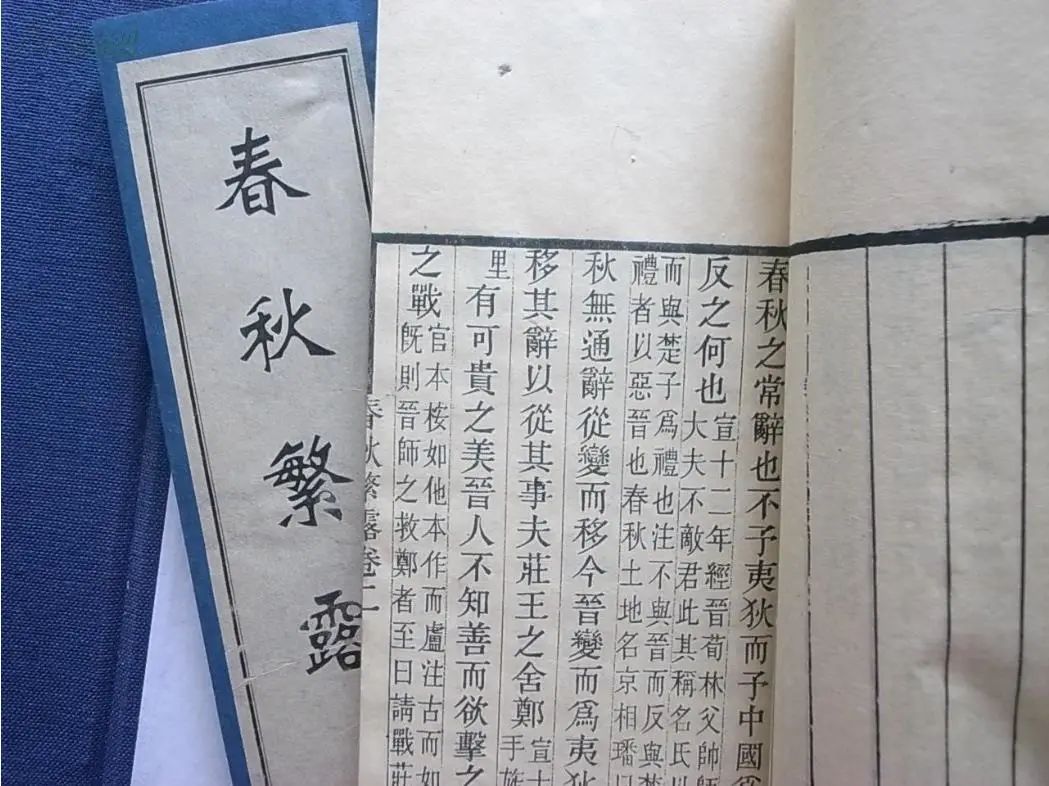 春秋繁露
春秋之常辭也不予夷狄而予中國爲
反之何也
宣十二年經晉荀林父帥師
大夫不敵君此其稱名氏以
而與楚子爲禮也注不與晉而反與楚
禮者以惡晉也春秋土地名京相璠曰
秋無通辭從變而移今晉變而爲夷狄
移其辭以從其事夫莊王之舍鄭
宣十
手旌
里
有可貴之美晉人不知善而欲擊之
之戰
官本桉如他本作而盧注古而如
旣則晉師之救鄭者至曰請戰莊
春秋繁露卷二